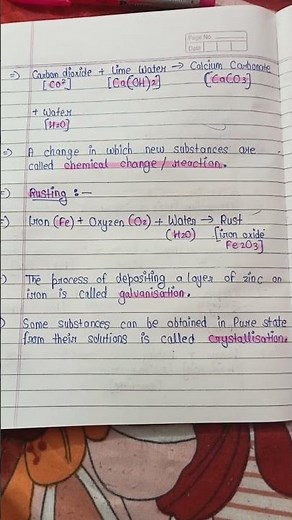 Page No.
Date
⇒ Carbon dioxide + Lime Water → Calcium Carbonate
[CO²] [Ca(OH)2] [CaCO3]
+ Water
[H2O]
⇒ A change in which new substances are
called chemical change / reaction.
⇒ Rusting :—
⇒ Iron (Fe) + Oxyzen (O2) + Water → Rust
(H2O) [iron oxide
Fe2O3]
The process of depositing a layer of zinc on
iron is called galvanisation.
Some substances can be obtained in Pure state
from their solutions is called crystallisation.